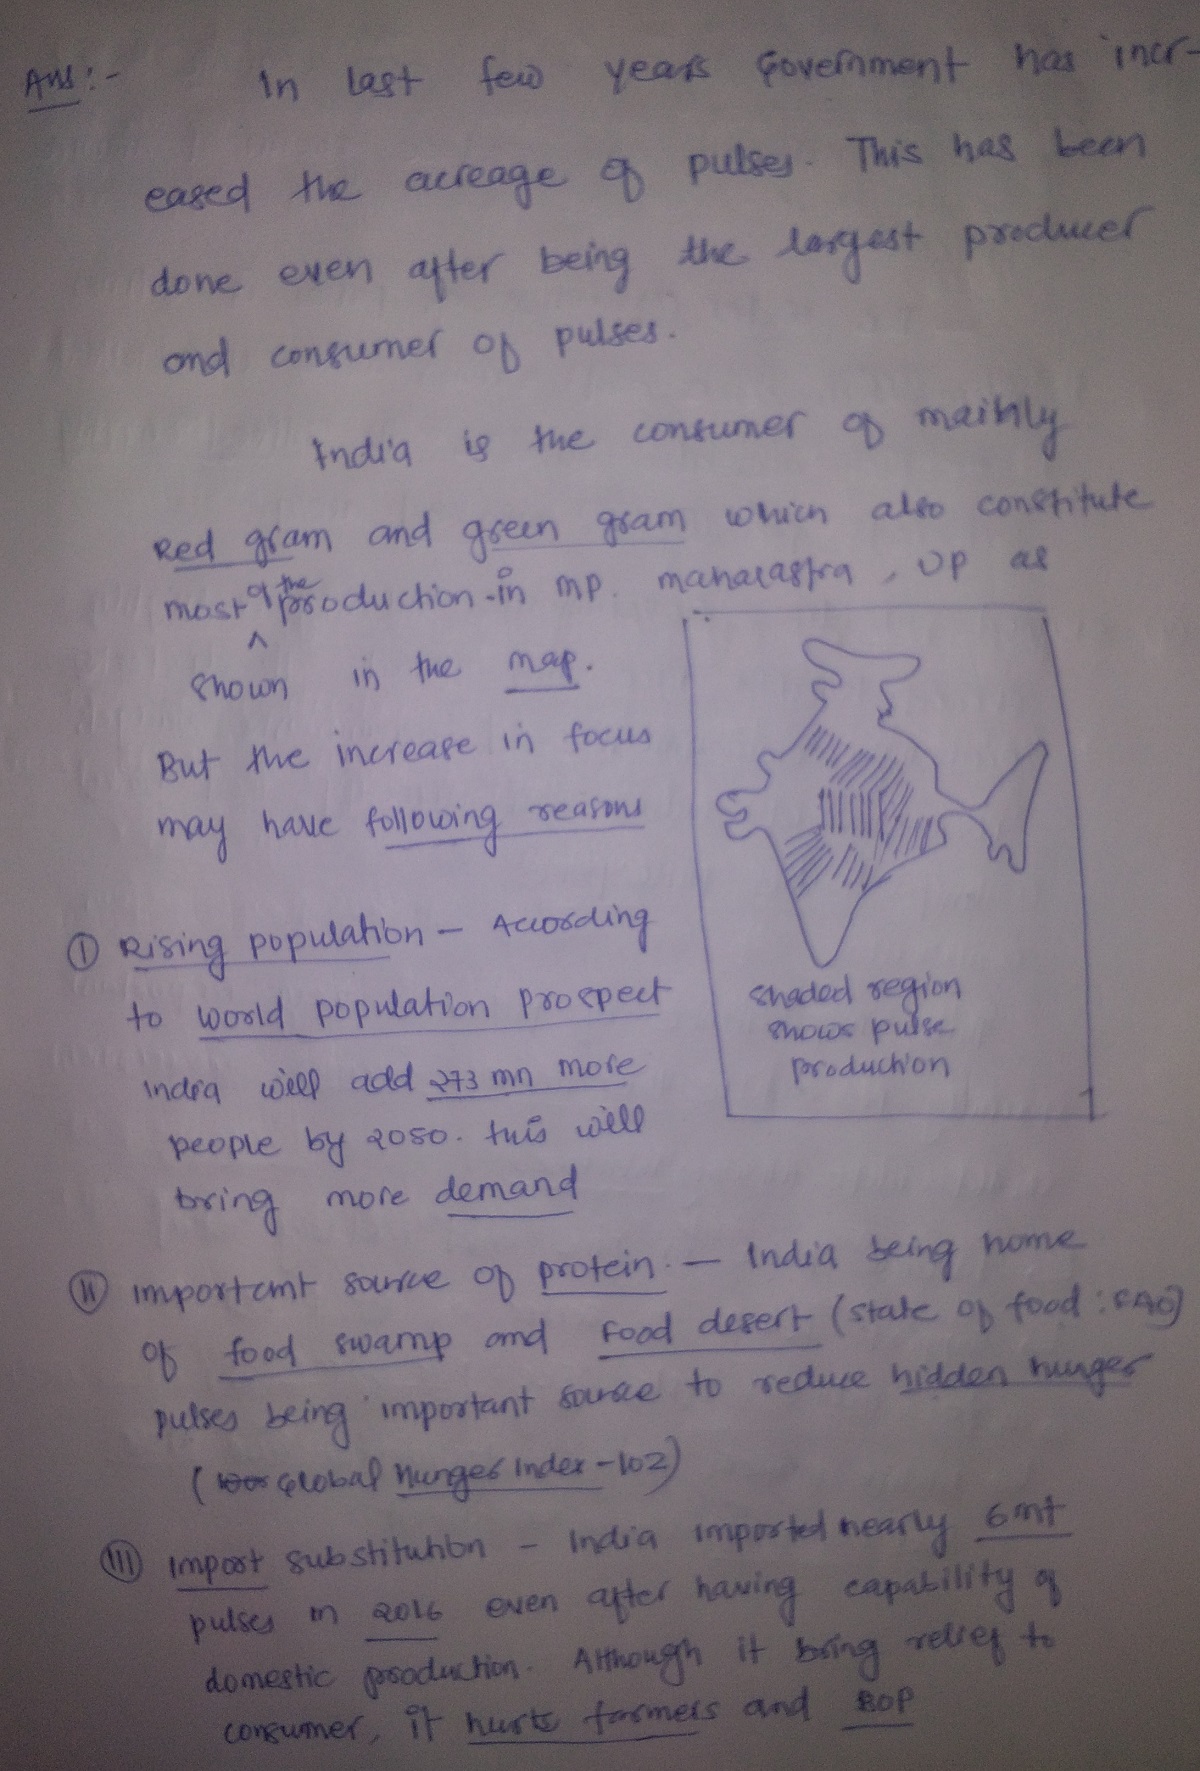 Ans:- In last few years Government has incr-
eased the acreage of pulses. This has been
done even after being the largest producer
and consumer of pulses.
India is the consumer of mainly
Red gram and green gram which also constitute
most of the production in MP. maharastra, UP as
shown in the map.
But the increase in focus
may have following reasons
shaded region
shows pulse
production
(I) Rising population - According
to world population prospect
India will add 273 mn more
people by 2050. this will
bring more demand
(II) Important source of protein. - India being home
of food swamp and food desert (state of food: FAO)
pulses being important source to reduce hidden hunger
(Global Hunger Index-102)
(III) Import substitution - India imported nearly 6mt
pulses in 2016 even after having capability of
domestic production. Although it bring relief to
consumer, it hurts farmers and BOP